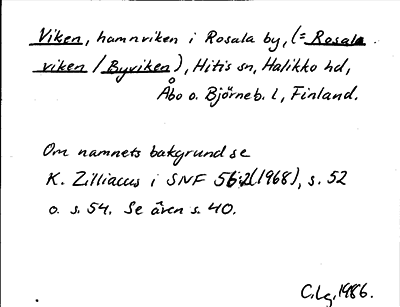 Viken, hamnviken i Rosala by, (= Rosala
viken / Byviken), Hitis sn, Halikko hd,
Åbo o. Björneb. l, Finland.
Om namnets bakgrund se
K. Zilliacus i SNF 56:2(1968), s. 52
o. s. 54. Se även s. 40.
C.Lg, 1986.